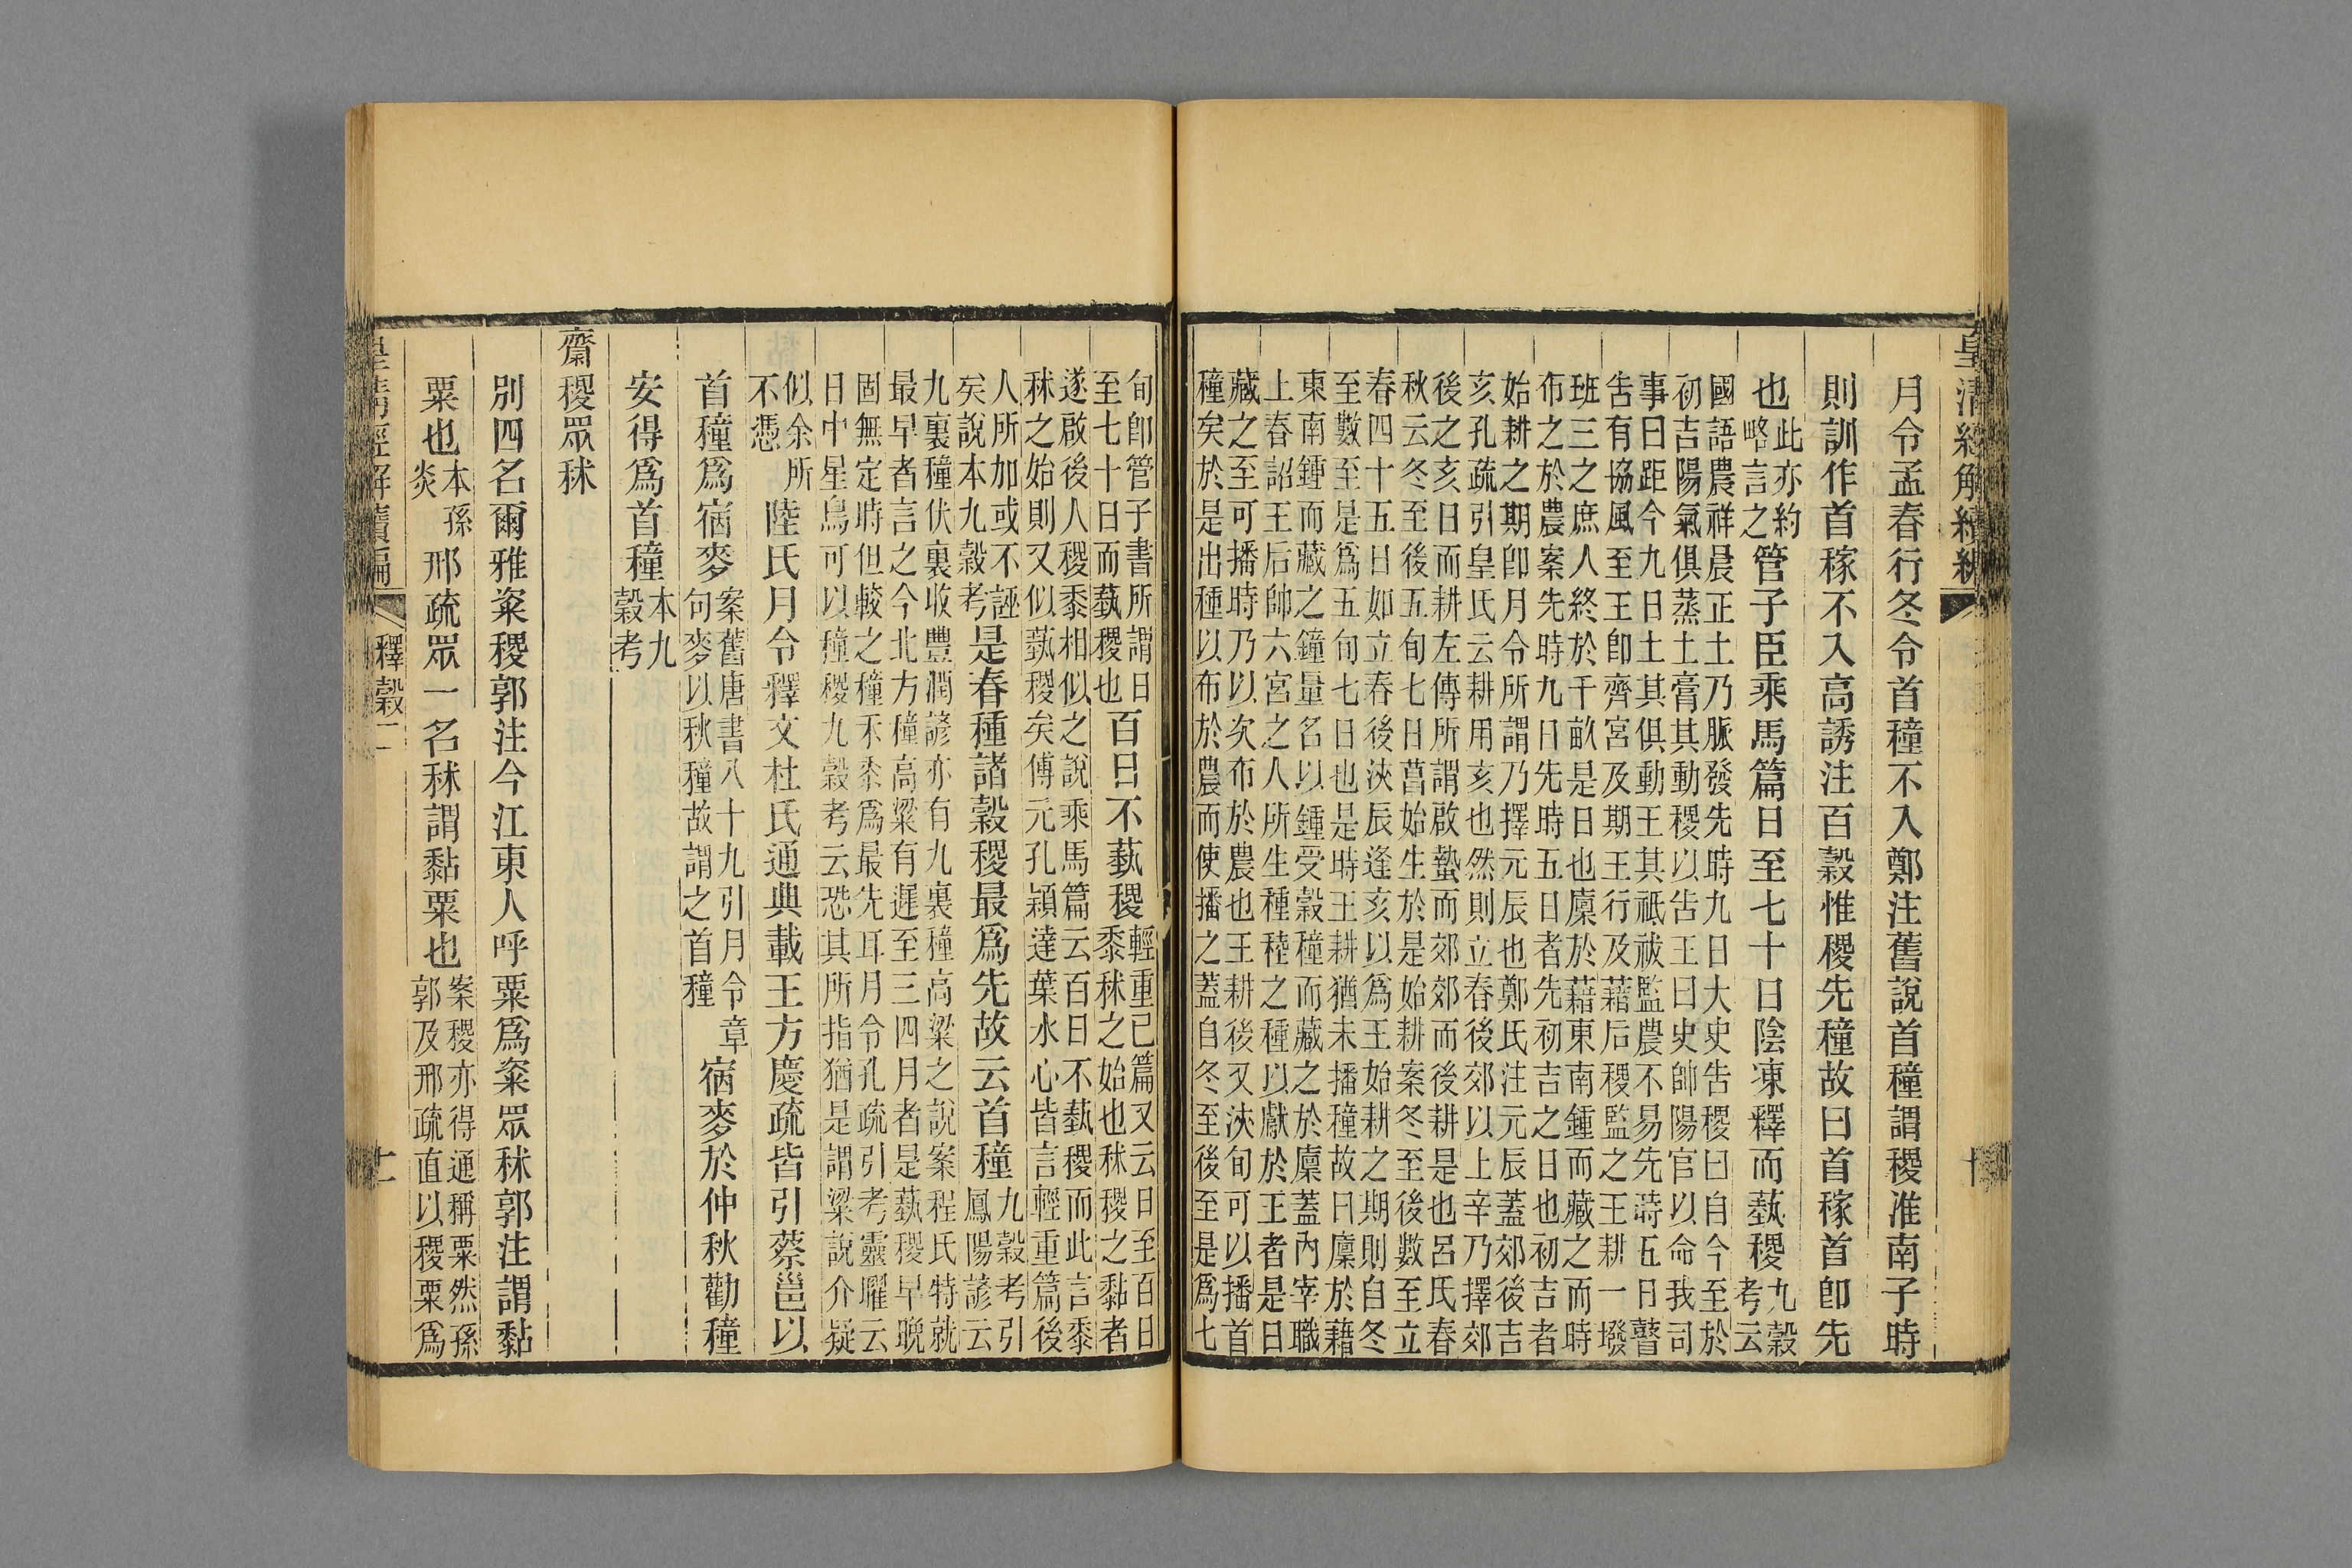 皇清經解續編
月令孟春行冬令首穜不入鄭注舊說首穜謂稷淮南子時
則訓作首稼不入高誘注百穀惟稷先穜故曰首稼首卽先
也
此亦約
略言之
管子臣乘馬篇日至七十日陰凍釋而蓺稷
九穀
考云
國語農祥晨正土乃脈發先時九日大史告稷曰自今至於
初吉陽氣俱蒸土膏其動稷以告王曰史帥陽官以命我司
事曰距今九日土其俱動王其祗祓監農不易先時五日瞽
告有協風至王卽齊宮及期王行及藉后稷監之王耕一墢
班三之庶人終於千畝是日也廩於藉東南鍾而藏之而時
布之於農案先時九日先時五日者先初吉之日也初吉者
始耕之期卽月令所謂乃擇元辰也鄭氏注元辰蓋郊後吉
亥孔疏引皇氏云耕用亥也然則立春後郊以上辛乃擇郊
後之亥日而耕左傳所謂啟蟄而郊郊而後耕是也呂氏春
秋云冬至後五旬七日菖始生於是始耕案冬至後數至立
春四十五日如立春後浹辰逢亥以爲王始耕之期則自冬
至數至是爲五旬七日也是時王耕猶未播穜故曰廩於藉
東南鍾而藏之鐘量名以鍾受穀穜而藏之於廩蓋內宰職
上春詔王后帥六宮之人所生種稑之種以獻於王者是日
藏之至可播時乃以次布於農也王耕後又浹旬可以播首
穜矣於是出種以布於農而使播之蓋自冬至後至是爲七
旬卽管子書所謂日
至七十日而蓺稷也
百日不蓺稷
輕重已篇又云日至百日
黍秫之始也秫稷之黏者
遂啟後人稷黍相似之說乘馬篇云百日不蓺稷而此言黍
秫之始則又似蓺稷矣傅元孔穎達葉水心皆言輕重篇後
人所加或不誣
矣說本九穀考
是春種諸穀稷最爲先故云首穜
九穀考引
鳳陽諺云
九裏穜伏裏收豐潤諺亦有九裏穜高粱之說案程氏特就
最早者言之今北方穜高粱有遲至三四月者是蓺稷早晚
固無定時但較之穜禾黍爲最先耳月令孔疏引考靈曜云
日中星鳥可以穜稷九穀考云恐其所指猶是謂粱說介疑
似余所
不憑
陸氏月令釋文杜氏通典載王方慶疏皆引蔡邕以
首穜爲宿麥
案舊唐書八十九引月令章
句麥以秋穜故謂之首穜
宿麥於仲秋勸穜
安得爲首穜
本九
穀考
齋稷眾秫
別四名爾雅粢稷郭注今江東人呼粟爲粢眾秫郭注謂黏
粟也
本孫
炎
邢疏眾一名秫謂黏粟也
案稷亦得通稱粟然孫
郭及邢疏直以稷粟爲
皇清經解續編
釋穀二
十一